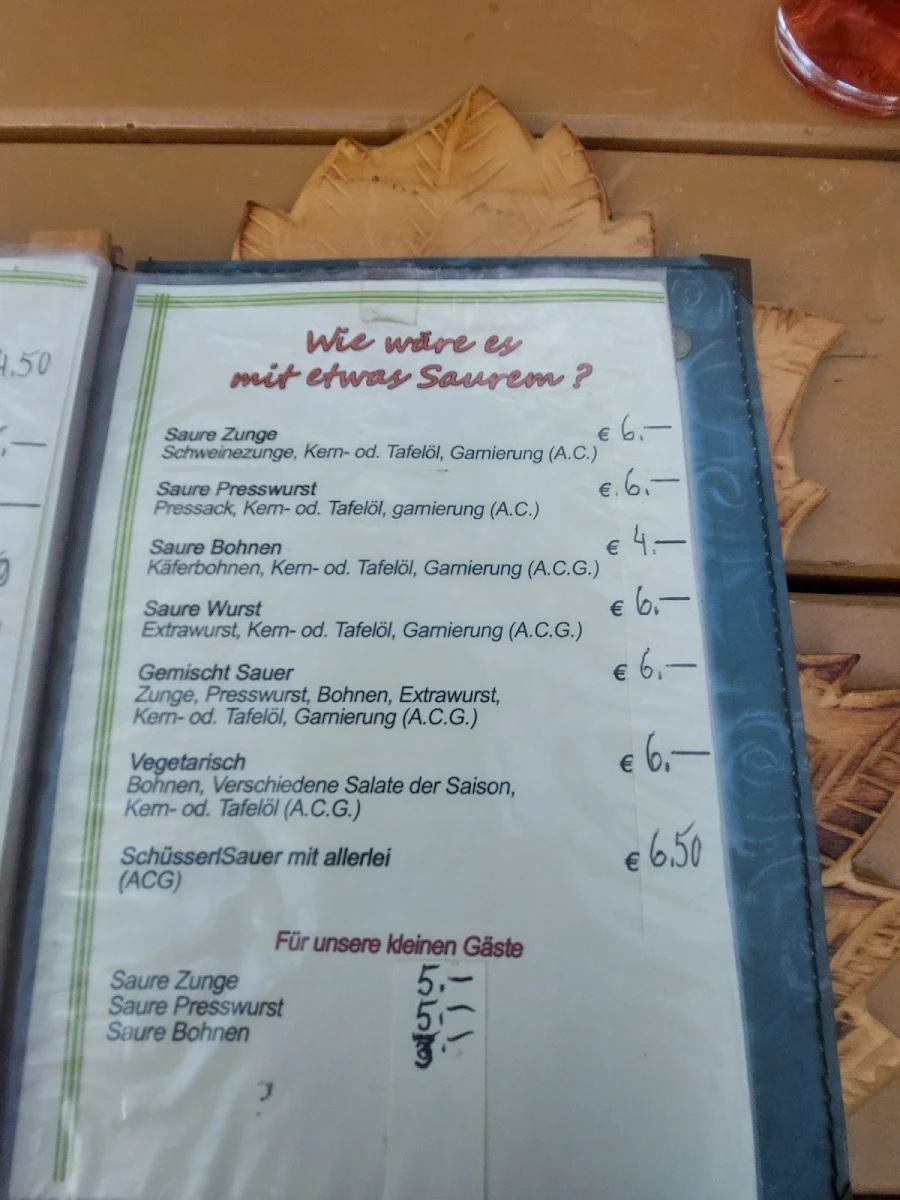 4.50
Wie wäre es
mit etwas Saurem ?
Saure Zunge € 6.—
Schweinezunge, Kern- od. Tafelöl, Garnierung (A.C.)
Saure Presswurst €. 6.—
Pressack, Kern- od. Tafelöl, garnierung (A.C.)
Saure Bohnen € 4.—
Käferbohnen, Kern- od. Tafelöl, Garnierung (A.C.G.)
Saure Wurst € 6.—
Extrawurst, Kern- od. Tafelöl, Garnierung (A.C.G.)
Gemischt Sauer € 6.—
Zunge, Presswurst, Bohnen, Extrawurst,
Kern- od. Tafelöl, Garnierung (A.C.G.)
Vegetarisch € 6.—
Bohnen, Verschiedene Salate der Saison,
Kern- od. Tafelöl (A.C.G.)
SchüsserlSauer mit allerlei € 6.50
(ACG)
Für unsere kleinen Gäste
Saure Zunge 5.-
Saure Presswurst 5.-
Saure Bohnen